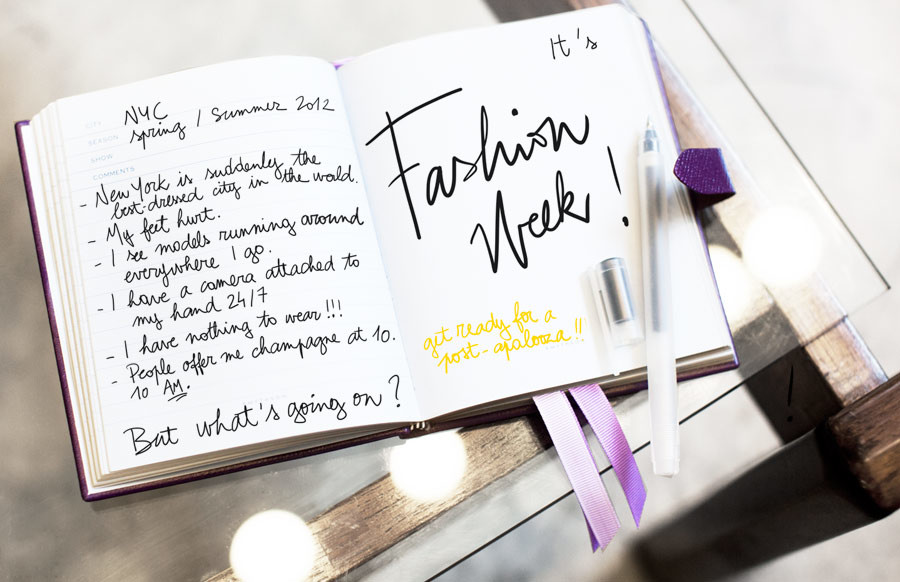 CITY
NYC
SEASON
spring / Summer 2012
SHOW
COMMENTS
- New York is suddenly the
best-dressed city in the world.
- My feet hurt.
- I see models running around
everywhere I go.
- I have a camera attached to
my hand 24/7
- I have nothing to wear!!!
- People offer me champagne at 10.
10 AM.
But what's going on?
It's
Fashion
Week!
get ready for a
post-apalooza!!